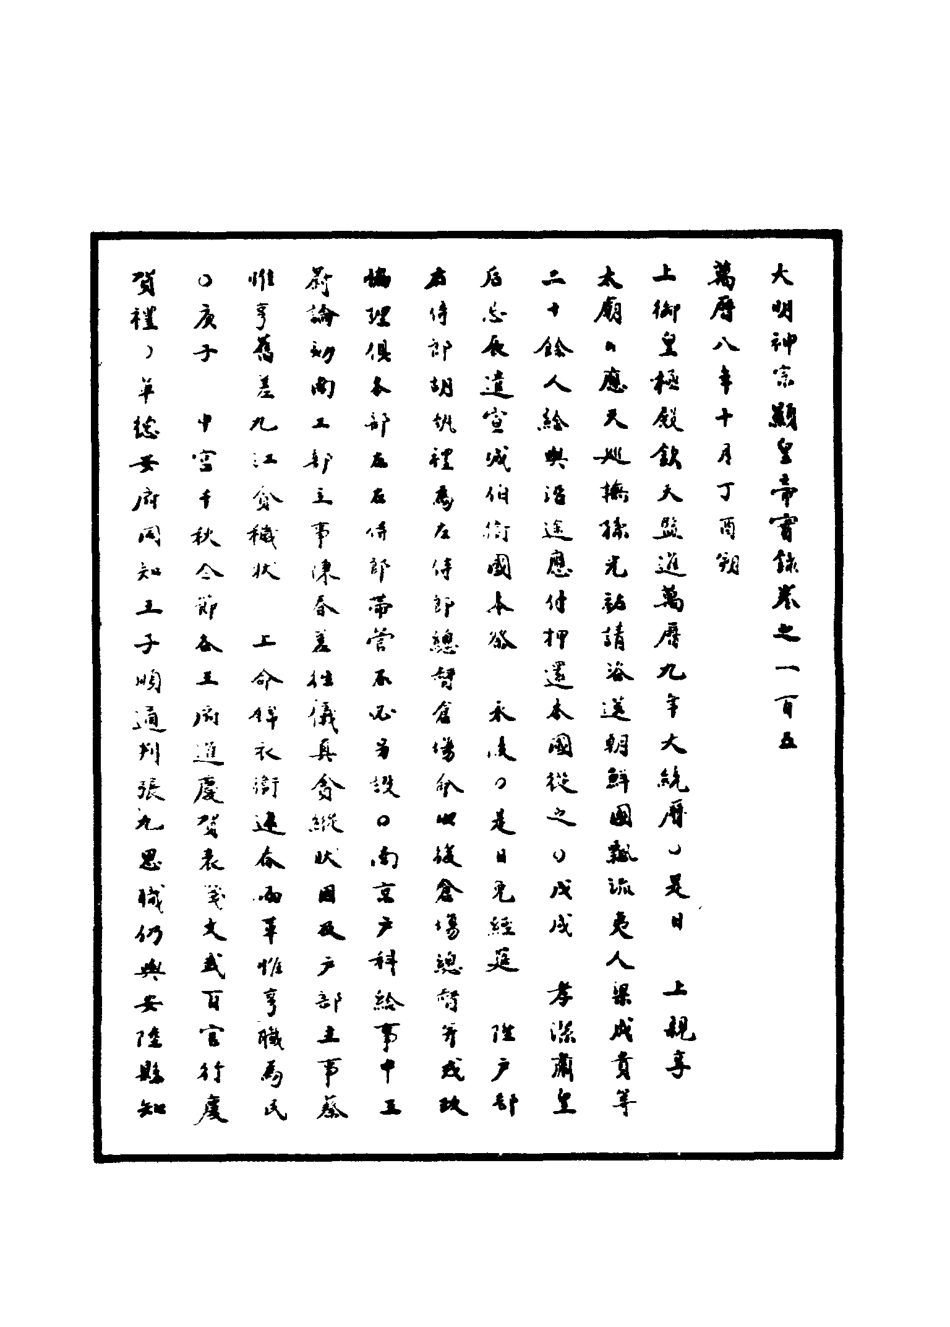 大明神宗顯皇帝實錄卷之一百五
萬曆八年十月丁酉朔
上御皇極殿欽天監進萬曆九年大統曆○是日　上親享
太廟○應天巡撫孫光祜請咨送朝鮮國飄流夷人梁成貴等
二十餘人給與沿途應付押還本國從之○戊戌　孝潔肅皇
后忌辰遣宣城伯衛國本祭　永陵○是日免經筵　陞戶部
右侍郎胡執禮為左侍郎總督倉場命以後倉場總督并戎政
協理俱各部左右侍郎帶管不必另設○南京戶科給事中王
蔚論劾南工部主事陳春差往儀真貪縱狀因及戶部主事蔡
惟亨舊差九江貪穢狀　上命錦衣衛逮春而革惟亨職為民
○庚子　中宮千秋令節各王府進慶賀表箋文武百官行慶
賀禮○革德安府同知王子順通判張九思職仍與安陸縣知